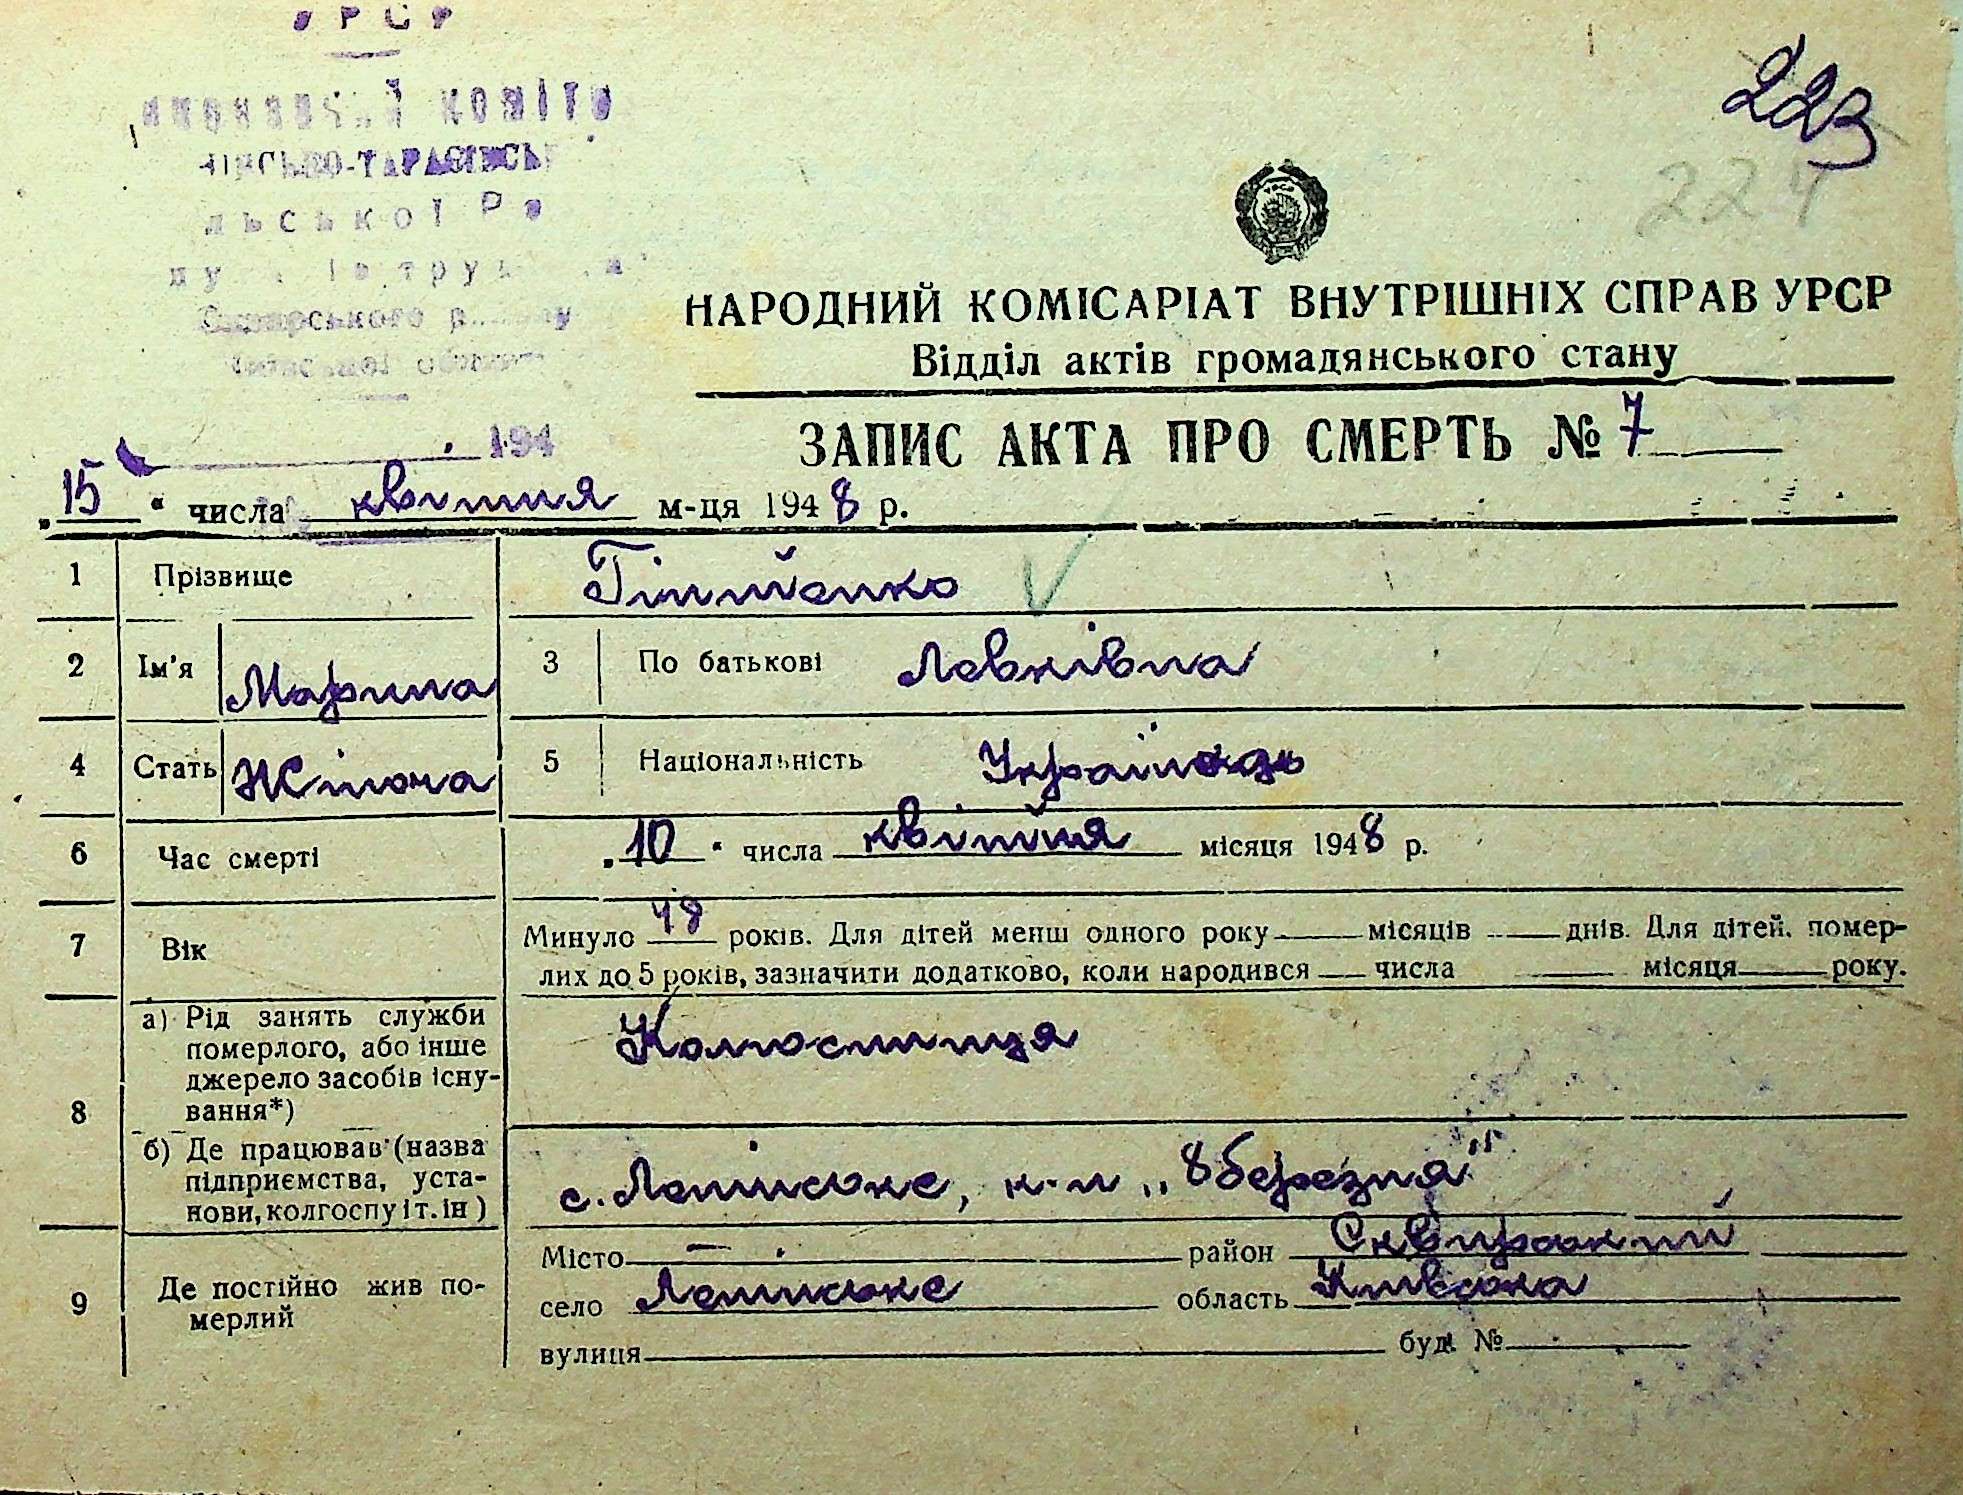 УРСР
223
224
НАРОДНИЙ КОМІСАРІАТ ВНУТРІШНІХ СПРАВ УРСР
Відділ актів громадянського стану
ЗАПИС АКТА ПРО СМЕРТЬ № 7
194
„15“ числа квітня м-ця 1948 р.
1 Прізвище
2 Ім'я Марина 3 По батькові Левківна
4 Стать Жіноча 5 Національність
6 Час смерті „10“ числа квітня місяця 1948 р.
7 Вік Минуло 48 років. Для дітей менш одного року місяців днів. Для дітей, помер-
лих до 5 років, зазначити додатково, коли народився числа місяця року.
8 а) Рід занять служби
померлого, або інше
джерело засобів існу-
вання*)
Колгоспниця
б) Де працював (назва
підприємства, уста-
нови, колгоспу і т. ін)
с. к-п „8 березня"
9 Де постійно жив по-
мерлий
Місто — район Сквирський
село область Київська
вулиця буд. №